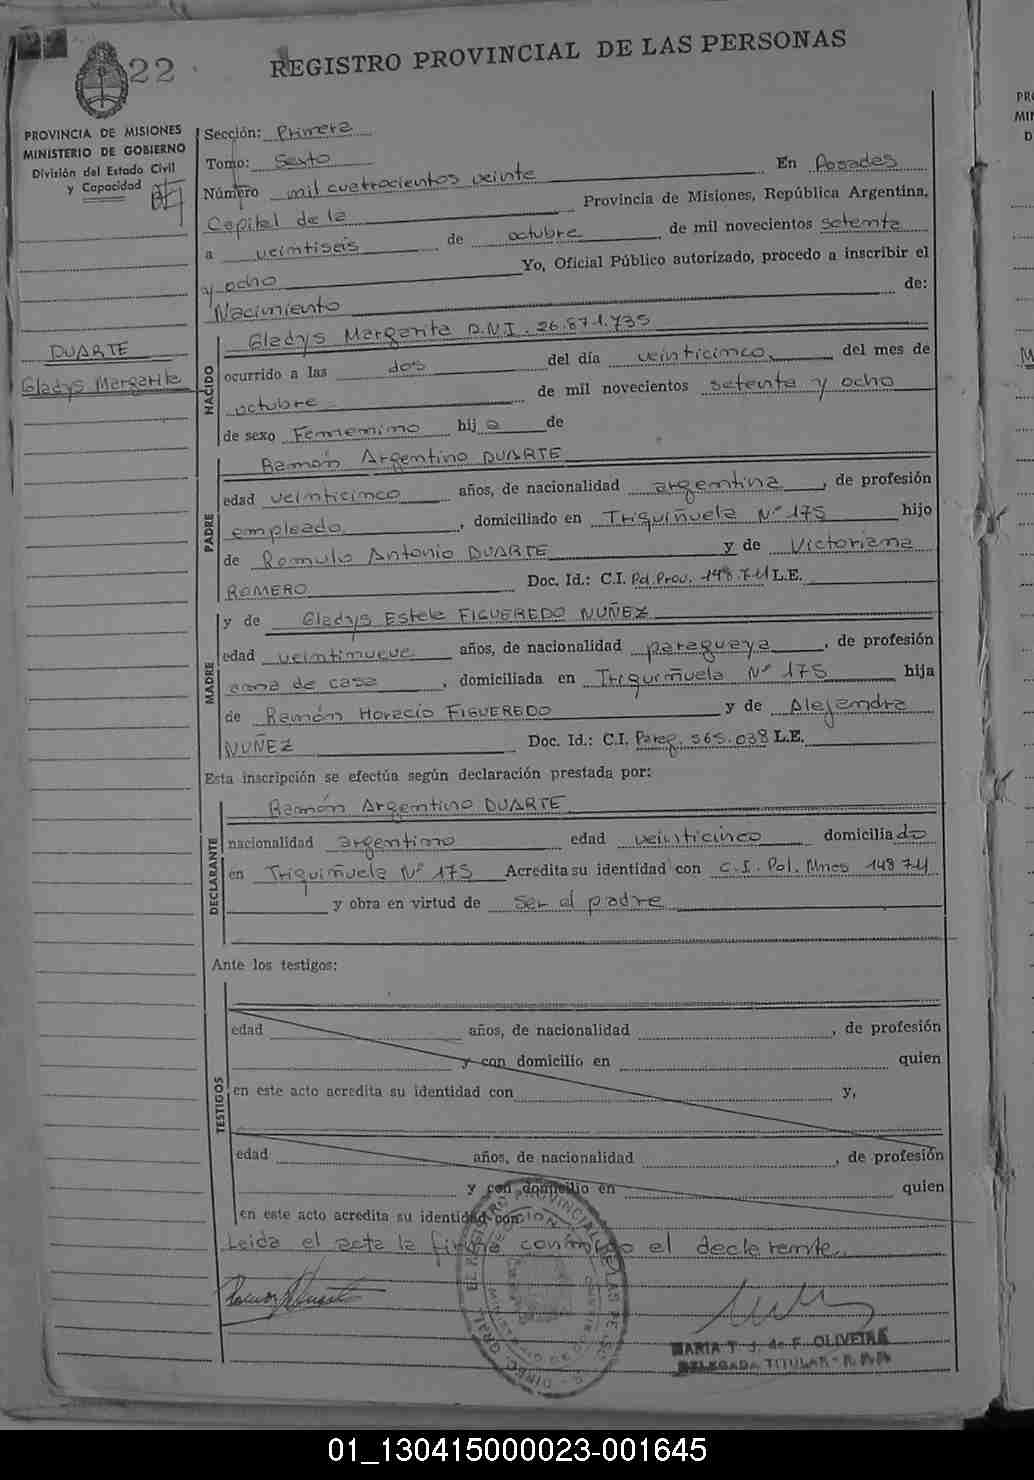 22
REGISTRO PROVINCIAL DE LAS PERSONAS
PROVINCIA DE MISIONES
MINISTERIO DE GOBIERNO
División del Estado Civil
y Capacidad
DUARTE
Gladys Margarita
Sección: Primera
Tomo: Sexto
Número mil cuatrocientos veinte En Posadas
Capital de la Provincia de Misiones, República Argentina,
a veintiseis de octubre de mil novecientos setenta
y ocho Yo, Oficial Público autorizado, procedo a inscribir el
Nacimiento de:
NACIDO
Gladys Margarita D.N.I. 26.871.735
ocurrido a las dos del día veinticinco del mes de
octubre de mil novecientos setenta y ocho
de sexo Femenino hija de
PADRE
Ramón Argentino DUARTE
edad veinticinco años, de nacionalidad argentina, de profesión
empleado, domiciliado en Triquiñuela Nº 175 hijo
de Romulo Antonio DUARTE y de Victoriana
ROMERO Doc. Id.: C.I. Pol. Prov. 148.741 L.E.
MADRE
y de Gladys Estela FIGUEREDO NUÑEZ
edad veintinueve años, de nacionalidad paraguaya, de profesión
ama de casa, domiciliada en Triquiñuela Nº 175 hija
de Ramón Horacio FIGUEREDO y de Alejandra
NUÑEZ Doc. Id.: C.I. Parag. 565.038 L.E.
Esta inscripción se efectúa según declaración prestada por:
DECLARANTE
Ramón Argentino DUARTE
nacionalidad argentino edad veinticinco domiciliado
en Triquiñuela Nº 175 Acredita su identidad con C.I. Pol. Mnes 148741
y obra en virtud de ser el padre
Ante los testigos:
TESTIGOS
edad años, de nacionalidad, de profesión
y con domicilio en quien
en este acto acredita su identidad con y,
edad años, de nacionalidad, de profesión
y con domicilio en quien
en este acto acredita su identidad con
Leida el acta la firma conmigo el declarante.
MARIA T. J. de F. OLIVEIRA
DELEGADA TITULAR - R.P.P.
01_130415000023-001645